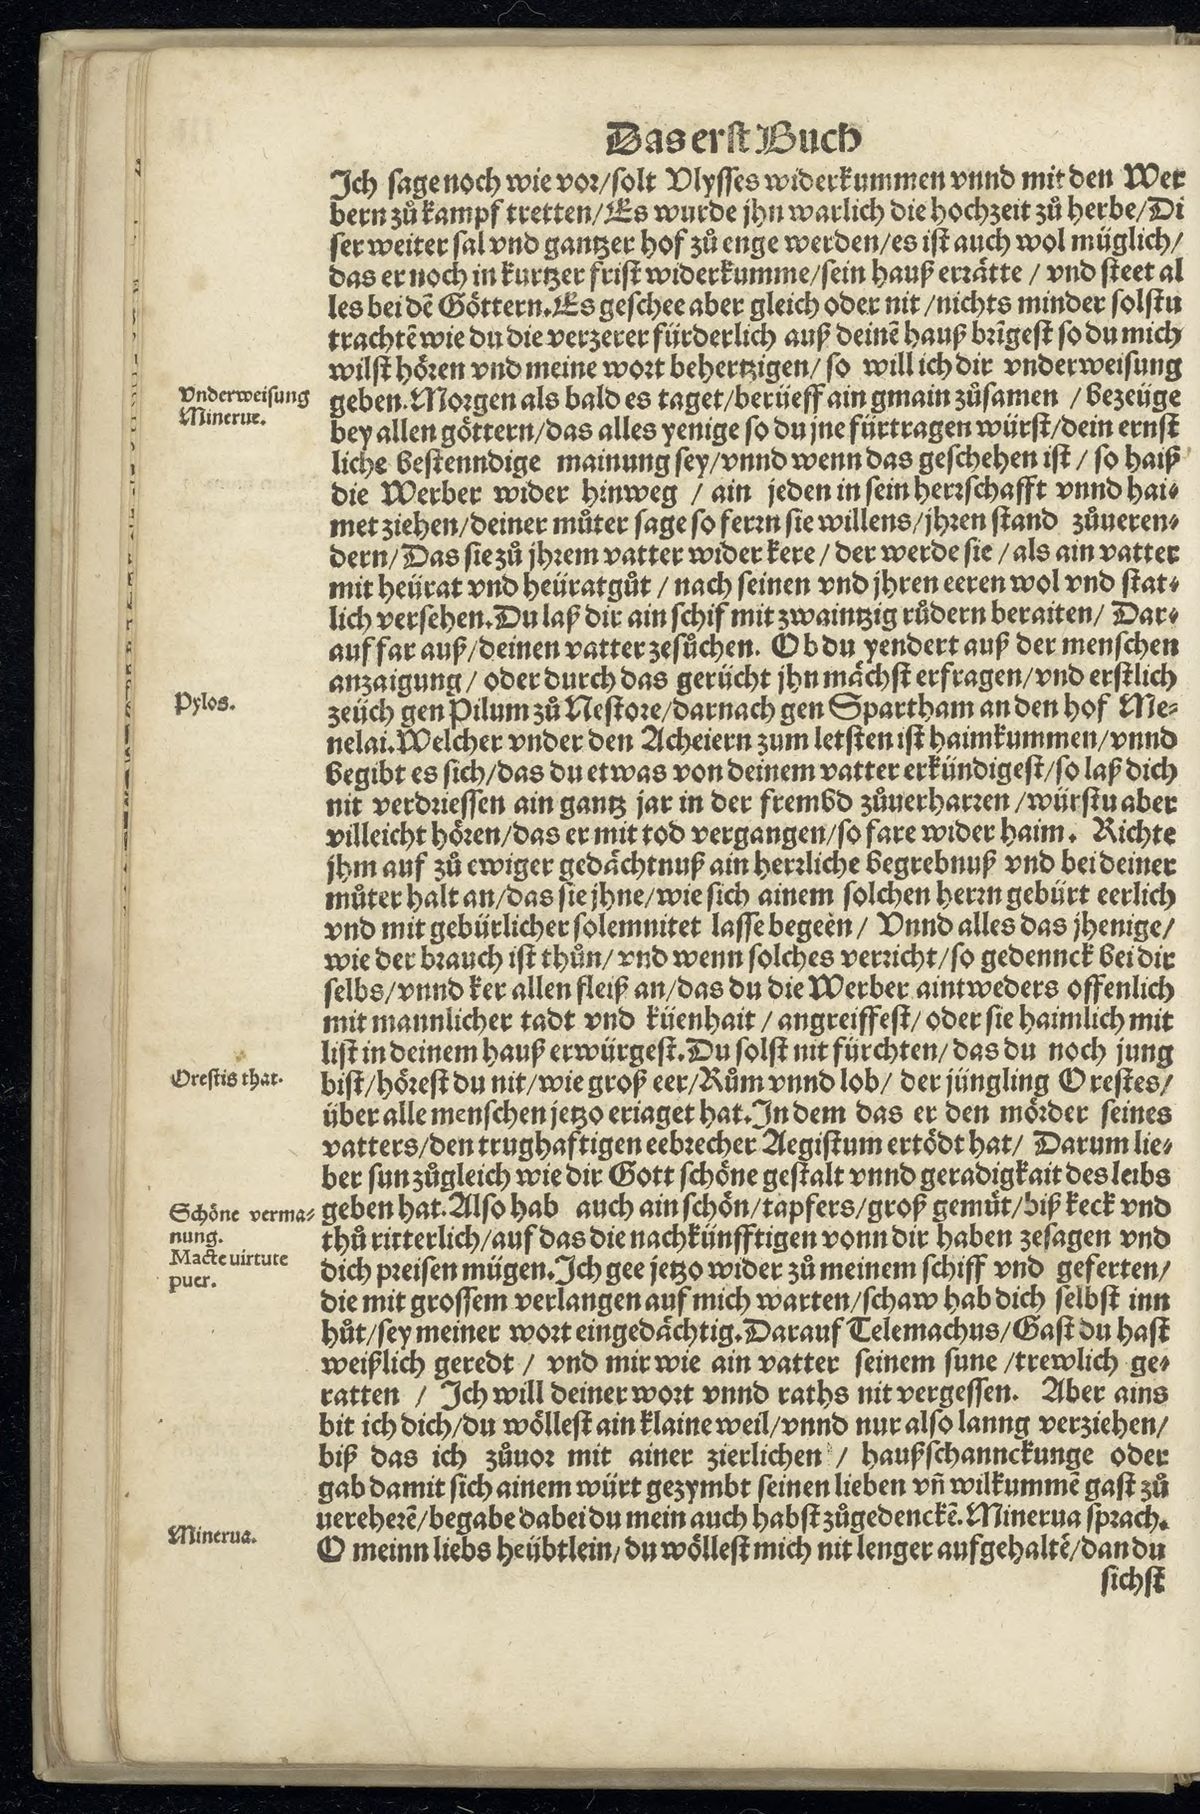 Das erst Buch
Ich sage noch wie vor/solt Vlysses widerkummen vnnd mit den Wer
bern zů kampf tretten/Es wurde jhn warlich die hochzeit zů herbe/Di
ser weiter sal vnd gantzer hof zů enge werden/es ist auch wol müglich/
das er noch in kurtzer frist widerkumme/sein hauß errätte / vnd steet al
les bei dē Göttern.Es geschee aber gleich oder nit /nichts minder solstu
trachtē wie du die verzerer fürderlich auß deinē hauß brīgest so du mich
wilst hören vnd meine wort behertzigen/ so will ich dir vnderweisung
Vnderweisung
Minerue.
geben.Morgen als bald es taget/berüeff ain gmain zůsamen / bezeüge
bey allen göttern/das alles yenige so du jne fürtragen würst/dein ernst
liche bestenndige mainung sey/vnnd wenn das geschehen ist / so haiß
die Werber wider hinweg / ain jeden in sein herrschafft vnnd hai⸗
met ziehen/deiner můter sage so ferrn sie willens/jhren stand zůueren⸗
dern/Das sie zů jhrem vatter wider kere / der werde sie / als ain vatter
mit heürat vnd heüratgůt / nach seinen vnd jhren eeren wol vnd stat⸗
lich versehen.Du laß dir ain schif mit zwaintzig růdern beraiten/ Dar⸗
auf far auß/deinen vatter zesůchen. Ob du yendert auß der menschen
anzaigung / oder durch das gerücht jhn mächst erfragen/vnd erstlich
Pylos.
zeüch gen Pilum zů Nestore/darnach gen Spartham an den hof Me⸗
nelai.Welcher vnder den Acheiern zum letsten ist haimkummen/vnnd
begibt es sich/das du etwas von deinem vatter erkündigest/so laß dich
nit verdriessen ain gantz jar in der frembd zůuerharren /würstu aber
villeicht hören/das er mit tod vergangen/so fare wider haim. Richte
jhm auf zů ewiger gedächtnuß ain herrliche begrebnuß vnd bei deiner
můter halt an/das sie jhne/wie sich ainem solchen herrn gebürt eerlich
vnd mit gebürlicher solemnitet lasse begeen/ Vnnd alles das jhenige/
wie der brauch ist thůn/ vnd wenn solches verricht/so gedennck bei dir
selbs/vnnd ker allen fleiß an/das du die Werber aintweders offenlich
mit mannlicher tadt vnd küenhait / angreiffest/ oder sie haimlich mit
list in deinem hauß erwürgest.Du solst nit fürchten/das du noch jung
Orestis that.
bist/hörest du nit/wie groß eer/Rům vnnd lob/ der jüngling Orestes/
über alle menschen jetzo eriaget hat.In dem das er den mörder seines
vatters/den trughaftigen eebrecher Aegistum ertödt hat/ Darum lie⸗
ber sun zůgleich wie dir Gott schöne gestalt vnnd geradigkait des leibs
Schöne verma⸗
nung.
Macte uirtute
puer.
geben hat.Also hab auch ain schön/tapfers/groß gemüt/biß keck vnd
thů ritterlich/auf das die nachkünfftigen vonn dir haben zesagen vnd
dich preisen mügen.Ich gee jetzo wider zů meinem schiff vnd geferten/
die mit grossem verlangen auf mich warten/schaw hab dich selbst inn
hůt/sey meiner wort eingedächtig.Darauf Telemachus/Gast du hast
weißlich geredt / vnd mir wie ain vatter seinem sune /trewlich ge⸗
ratten / Ich will deiner wort vnnd raths nit vergessen. Aber ains
bit ich dich/du wöllest ain klaine weil/vnnd nur also lanng verziehen/
biß das ich zůuor mit ainer zierlichen / haußschannckunge oder
gab damit sich ainem würt gezymbt seinen lieben vñ wilkummē gast zů
uereherē/begabe dabei du mein auch habst zůgedenckē.Minerua sprach.
Minerua.
O meinn liebs heübtlein/du wöllest mich nit lenger aufgehaltē/dan du
sichst